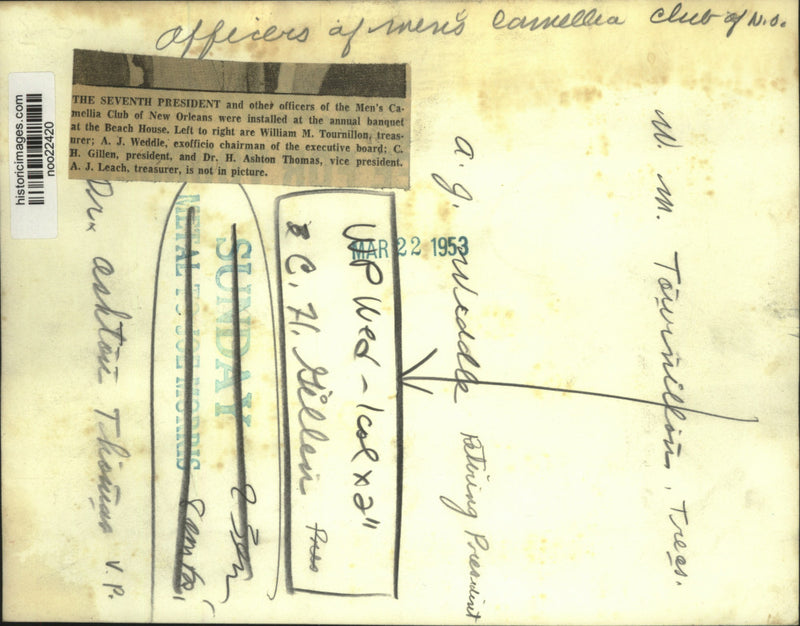 Officers of men's Camellia Club of N.O.
historicimages.com
noo22420
THE SEVENTH PRESIDENT and other officers of the Men's Ca-
mellia Club of New Orleans were installed at the annual banquet
at the Beach House. Left to right are William M. Tournillon, treas-
urer; A. J. Weddle, exofficio chairman of the executive board; C.
H. Gillen, president, and Dr. H. Ashton Thomas, vice president.
A. J. Leach, treasurer, is not in picture.
W. M. Tournillon, Treas.
A. J. Weddle Retiring President
MAR 22 1953
UP Wed - 1 col x 2"
C. H. Gillen Pres
SUNDAY
METAL TO JOE MORRIS
Dr. Ashton Thomas V.P.